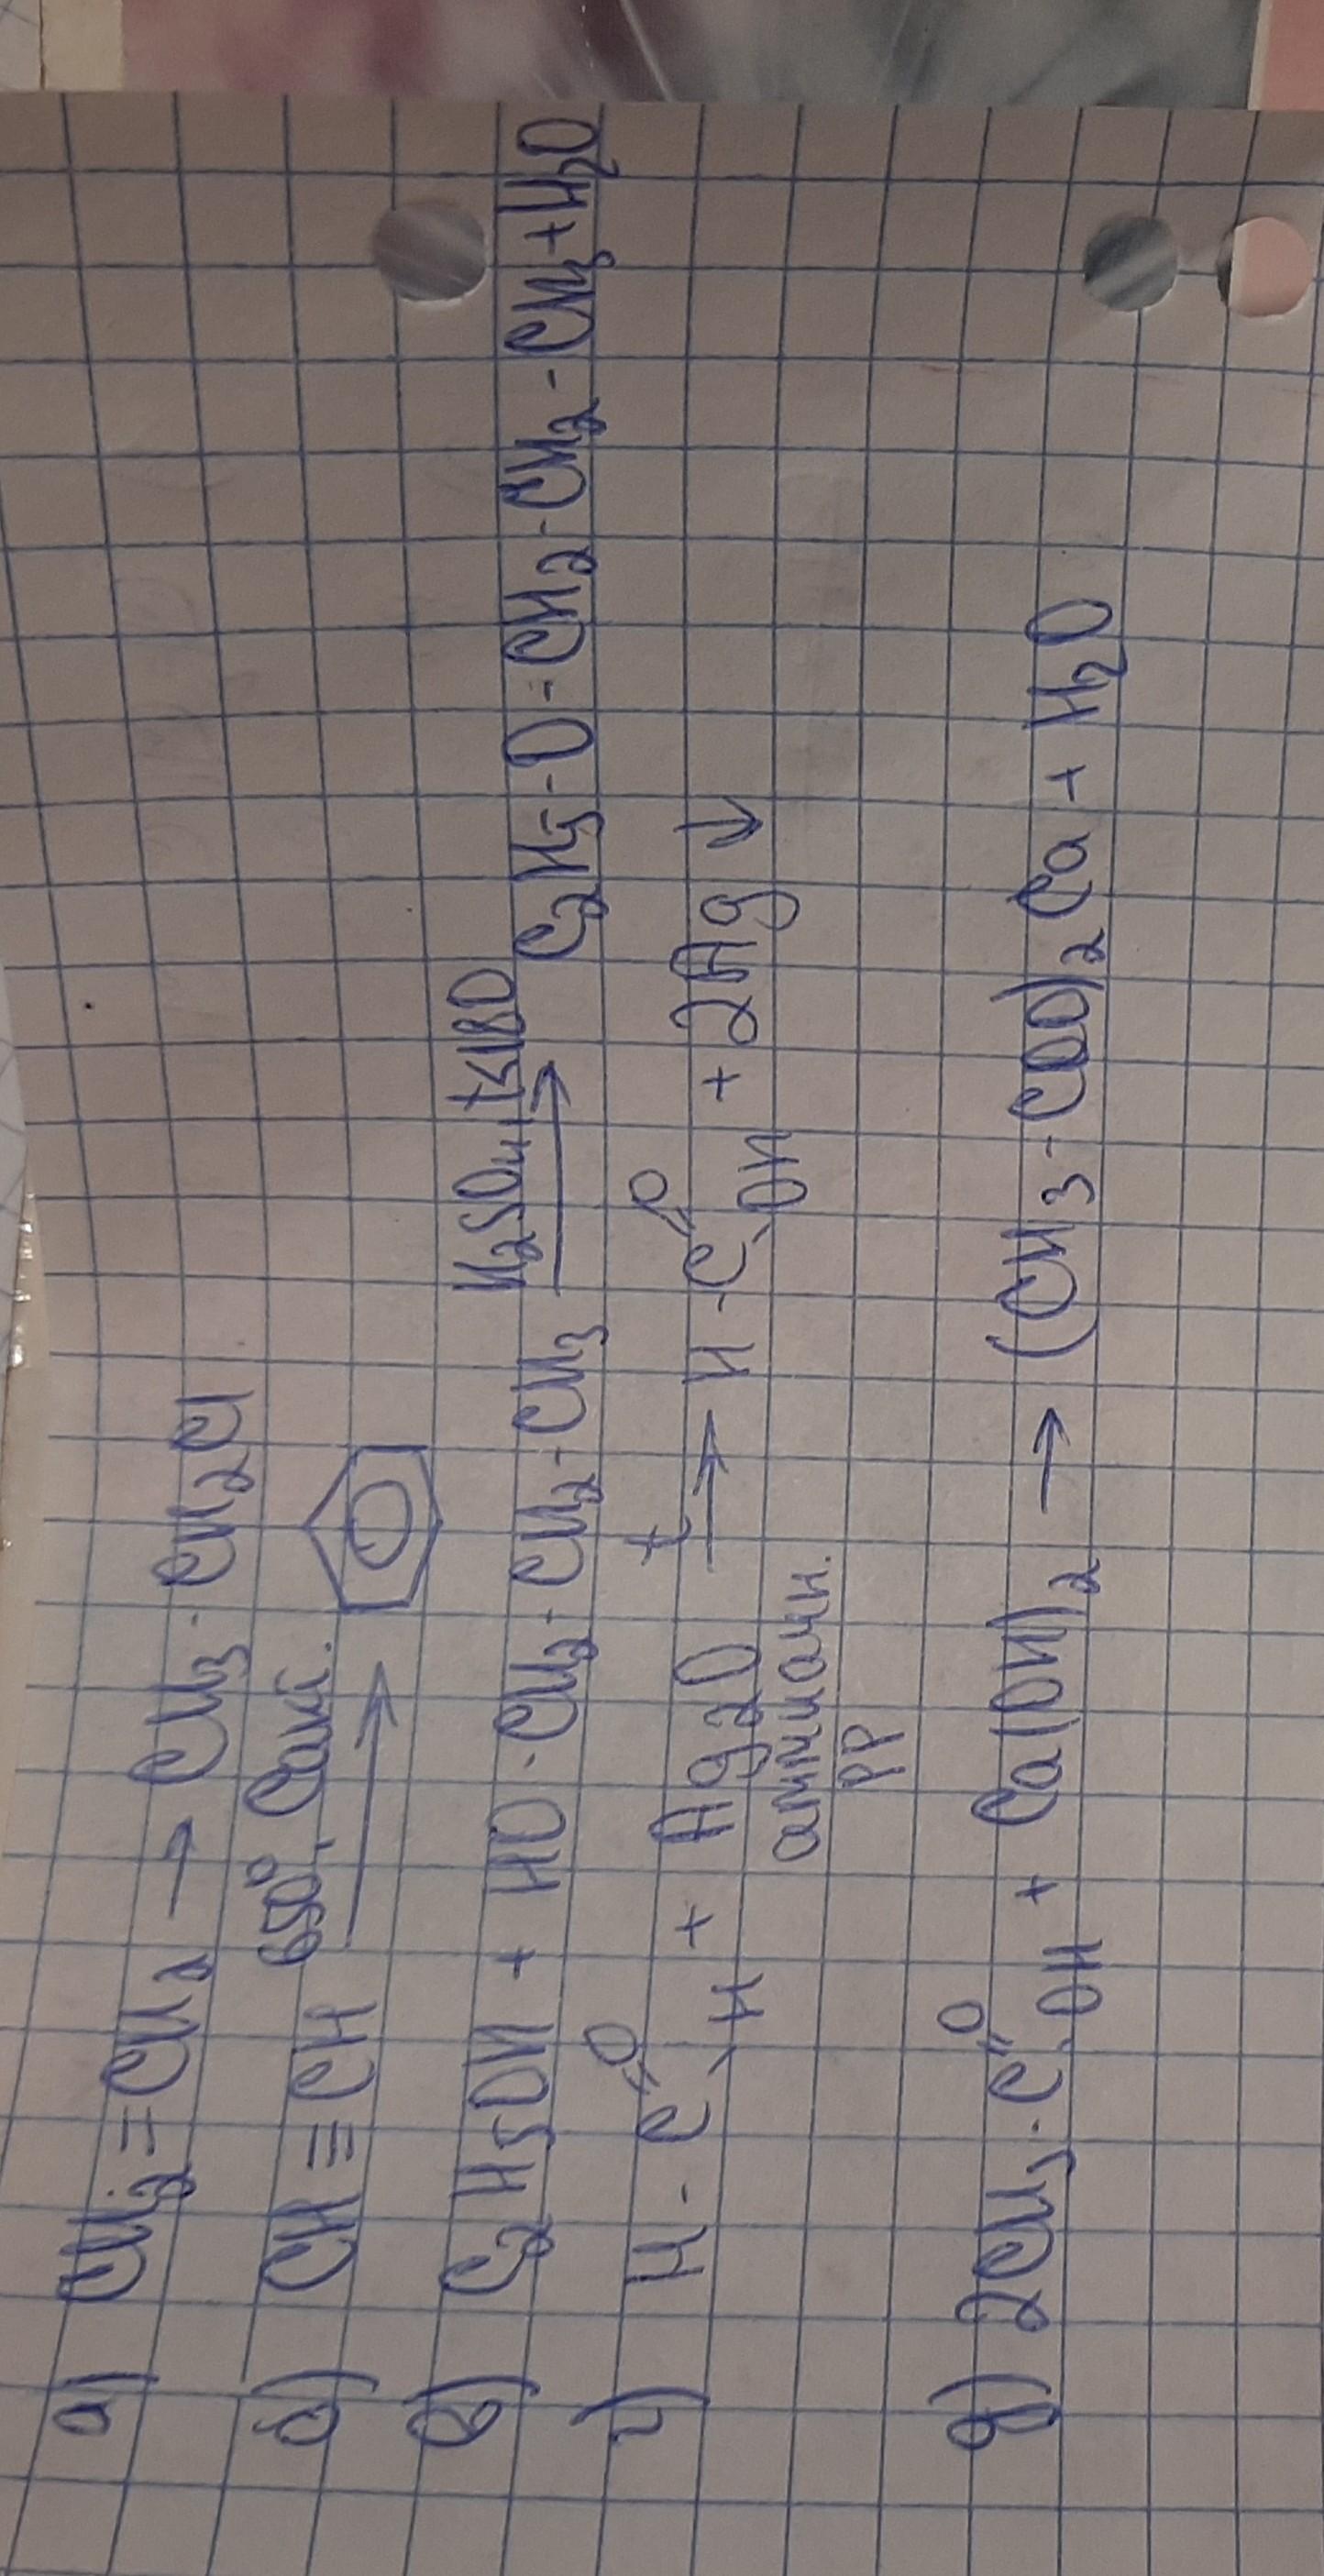 а) CH₂=CH₂ → CH₃-CH₂Cl
б) CH≡CH 650°, Cакт. →
в) C₂H₅OH + HO-CH₂-CH₂-CH₃ H₂SO₄, t≤180 → C₂H₅-O-CH₂-CH₂-CH₃+H₂O
г) H-C=O H + Ag₂O t → H-C=O OH + 2Ag↓
аммиачн.
рр
д) 2CH₃-C=O OH + Ca(OH)₂ → (CH₃-COO)₂Ca + H₂O